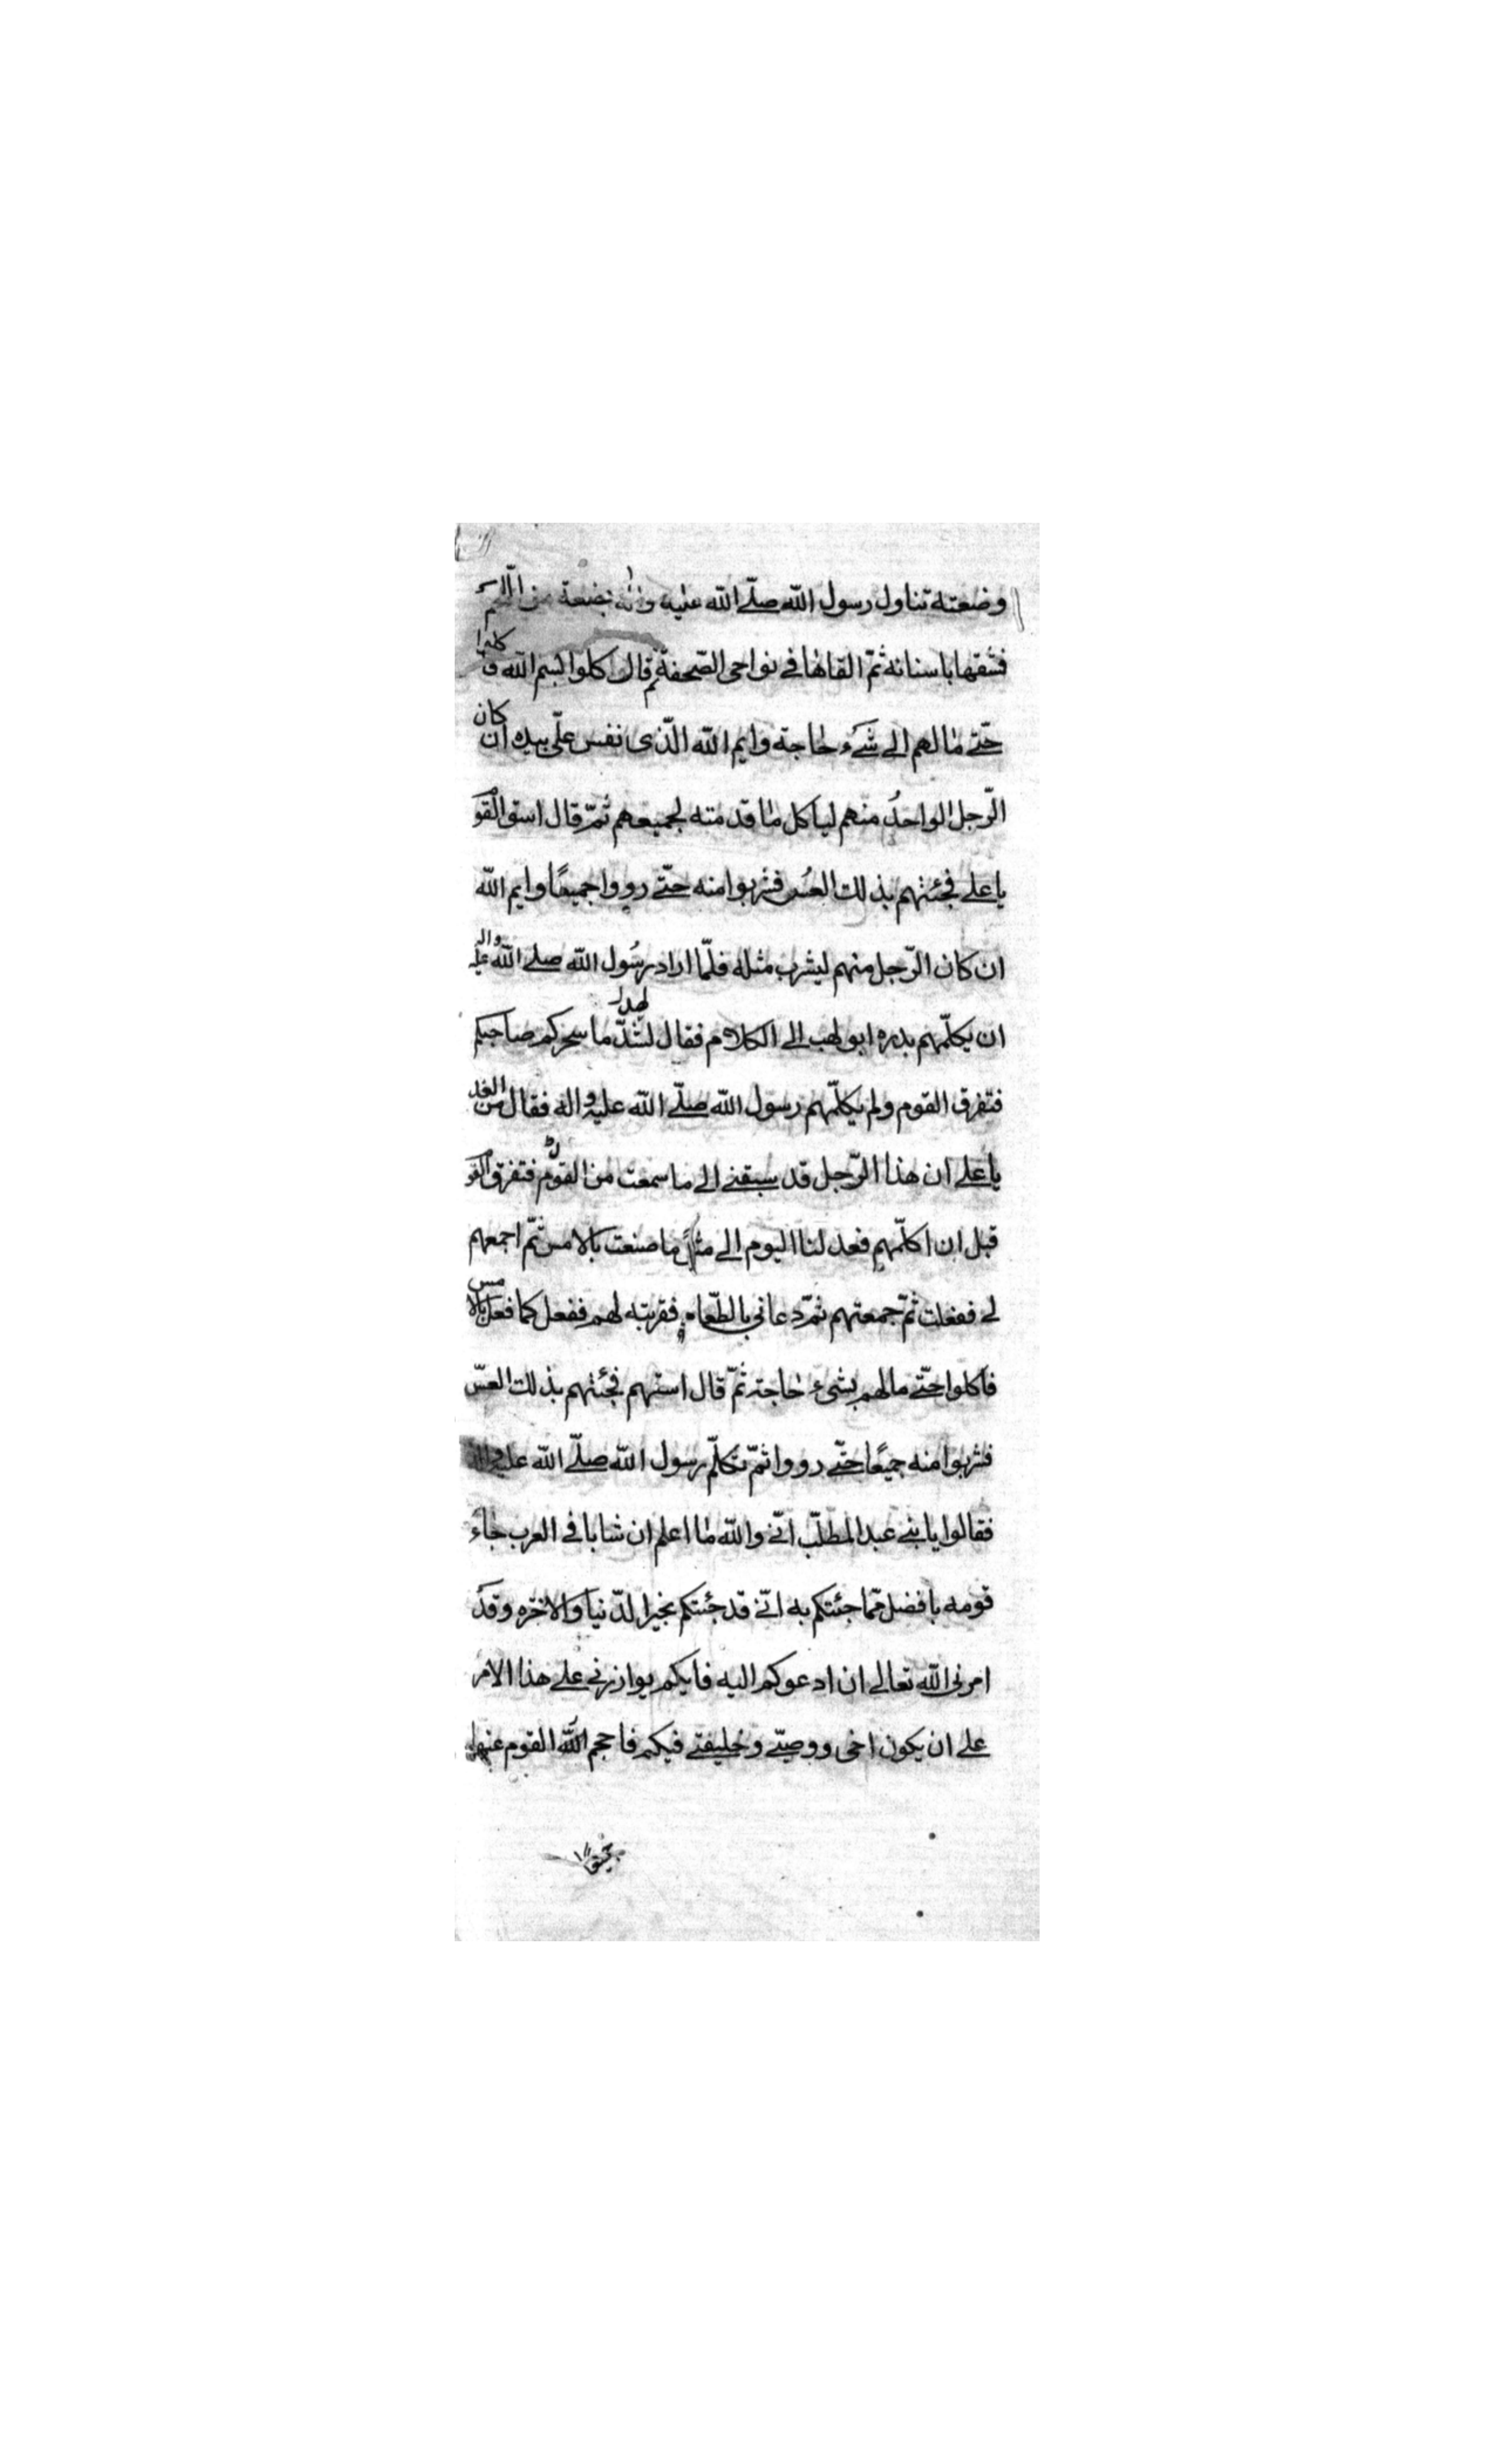 وضعته تناول رسول الله صلّے الله عليه واله بضعة من اللّحم
فشقها باسنانه ثمّ القاها فے نواحى الصّحفة ثم قال كلوا بسم الله فاكلوا
حتّے ما لهم الے شئ حاجة وايم الله الّذى نفس علّى بيده ان كان
الّرجل الواحدُ منهم لياكل ما قدمته لجميعهم ثمّ قال اسق القو
يا علے فجئتهم بذلك العُس فشربوا منه حتّے رووا جميعًا وايم الله
ان كان الّرجل منهم ليشرب مثله فلمّا اراد رسُول الله صلے الله عليه واله
ان يكلّمهم بدره ابو لهب الے الكلام فقال لشدّ ما سحركم صاحبكم
فتفرق القوم ولم يكلّمهم رسول الله صلّے الله عليه واله فقال من الغد
يا علے ان هذا الّرجل قد سبقنے الے ما سمعت من القوم فتفرق القو
قبل ان اكلّمهم فعد لنا اليوم الے مثل ما صنعت بالامس ثمّ اجمعهم
لے ففعلت ثمّ جمعتهم ثمّ دعانى بالطّعام فقربته لهم ففعل كما فعل بالامس
فاكلوا حتّے ما لهم بشئ حاجة ثمّ قال اسقهم فجئتهم بذلك العسّ
فشربوا منه جميعًا حتّے رووا ثمّ تكلّم رسول الله صلّے الله عليه واله
فقالوا يا بنے عبد المطلّب انّے والله ما اعلم ان شابا فے العرب جاء
قومه بافضل ممّا جئتكم به انّے قد جئتكم بخير الدّنيا والاخره وقد
امرنى الله تعالے ان ادعوكم اليه فايكم يوازرنى علے هذا الامر
علے ان يكون اخى ووصيّے وخليفتے فيكم فاحجم الله القوم عنها